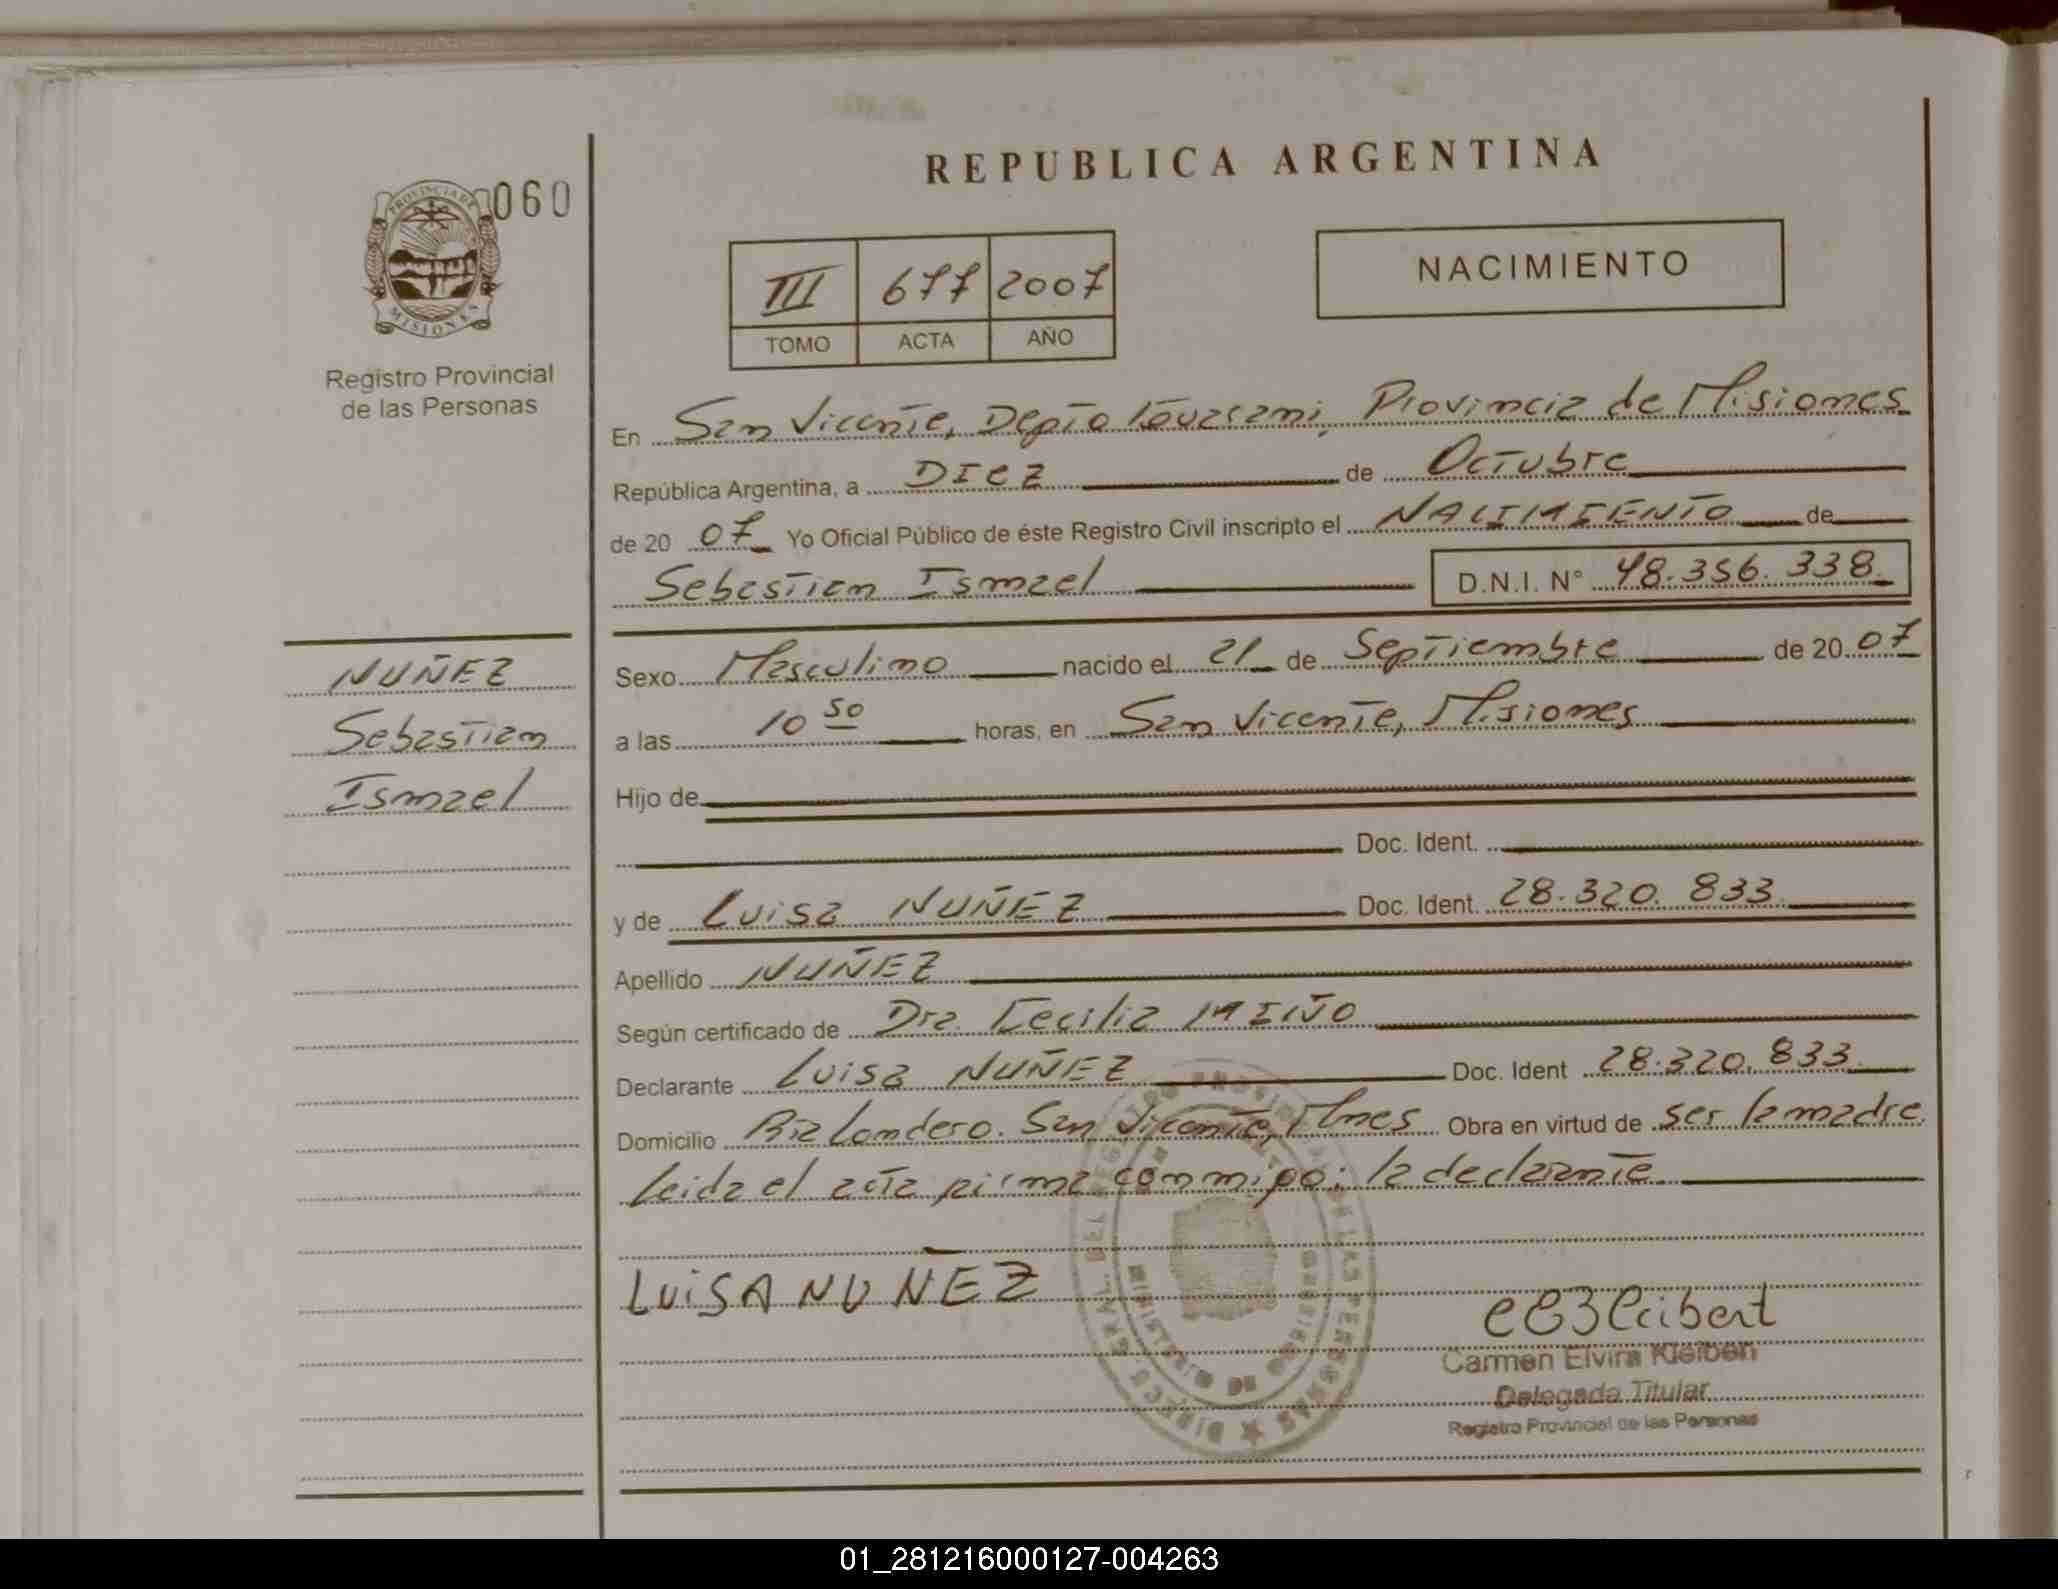 REPUBLICA ARGENTINA
060
PROVINCIA DE
MISIONES
Registro Provincial
de las Personas
NACIMIENTO
III 677 2007
TOMO ACTA AÑO
En San Vicente, Depto Guaraní, Provincia de Misiones
República Argentina, a DIEZ de Octubre
de 20 07 Yo Oficial Público de éste Registro Civil inscripto el NACIMIENTO de
Sebastian Ismael D.N.I. N° 48.356.338.
NUÑEZ
Sebastian
Ismael
Sexo Masculino nacido el 21 de Septiembre de 20 07
a las 10 50 horas, en San Vicente, Misiones
Hijo de
Doc. Ident.
y de Luisa NUÑEZ Doc. Ident. 28.320.833.
Apellido NUÑEZ
Según certificado de Dra. Cecilia MIÑO
Declarante Luisa NUÑEZ Doc. Ident 28.320.833.
Domicilio Bia Londero. San Vicente, Mnes Obra en virtud de ser la madre.
Leida el acta firma conmigo: la declarante
LUISA NUNEZ
Carmen Elvira
Delegada Titular
Registro Provincial de las Personas
01_281216000127-004263